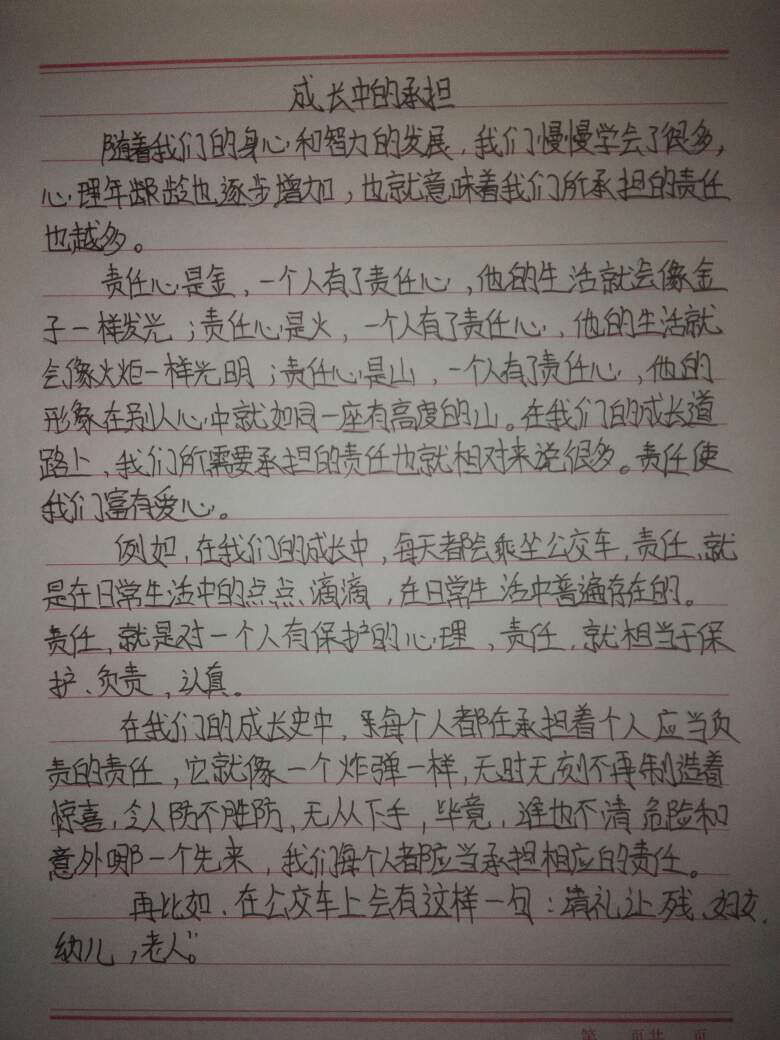 成长中的承担
随着我们的身心和智力的发展，我们慢慢学会了很多，
心理年龄也逐步增加，也就意味着我们所承担的责任
也越多。
责任心是金，一个人有了责任心，他的生活就会像金
子一样发光；责任心是火，一个人有了责任心，他的生活就
会像火炬一样光明；责任心是山，一个人有了责任心，他的
形象在别人心中就如同一座有高度的山。在我们的成长道
路上，我们所需要承担的责任也就相对来说很多。责任使
我们富有爱心。
例如，在我们的成长中，每天都会乘坐公交车，责任，就
是在日常生活中的点点、滴滴，在日常生活中普遍存在的。
责任，就是对一个人有保护的心理，责任，就相当于保
护、负责，认真。
在我们的成长史中，每个人都在承担着个人应当负
责的责任，它就像一个炸弹一样，无时无刻不再制造着
惊喜，令人防不胜防，无从下手，毕竟，谁也不清危险和
意外哪一个先来，我们每个人都应当承担相应的责任。
再比如，在公交车上会有这样一句：请礼让残、妇女，
幼儿，老人”。
第 页共 页